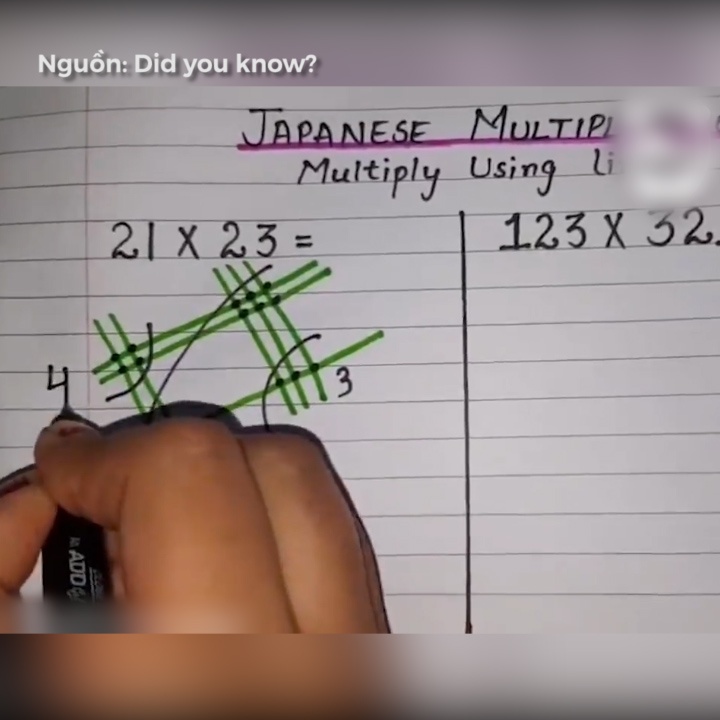 Nguồn: Did you know?
JAPANESE MULTIPL
Multiply Using li
21 X 23 =
123 X 32
4
3
ADD